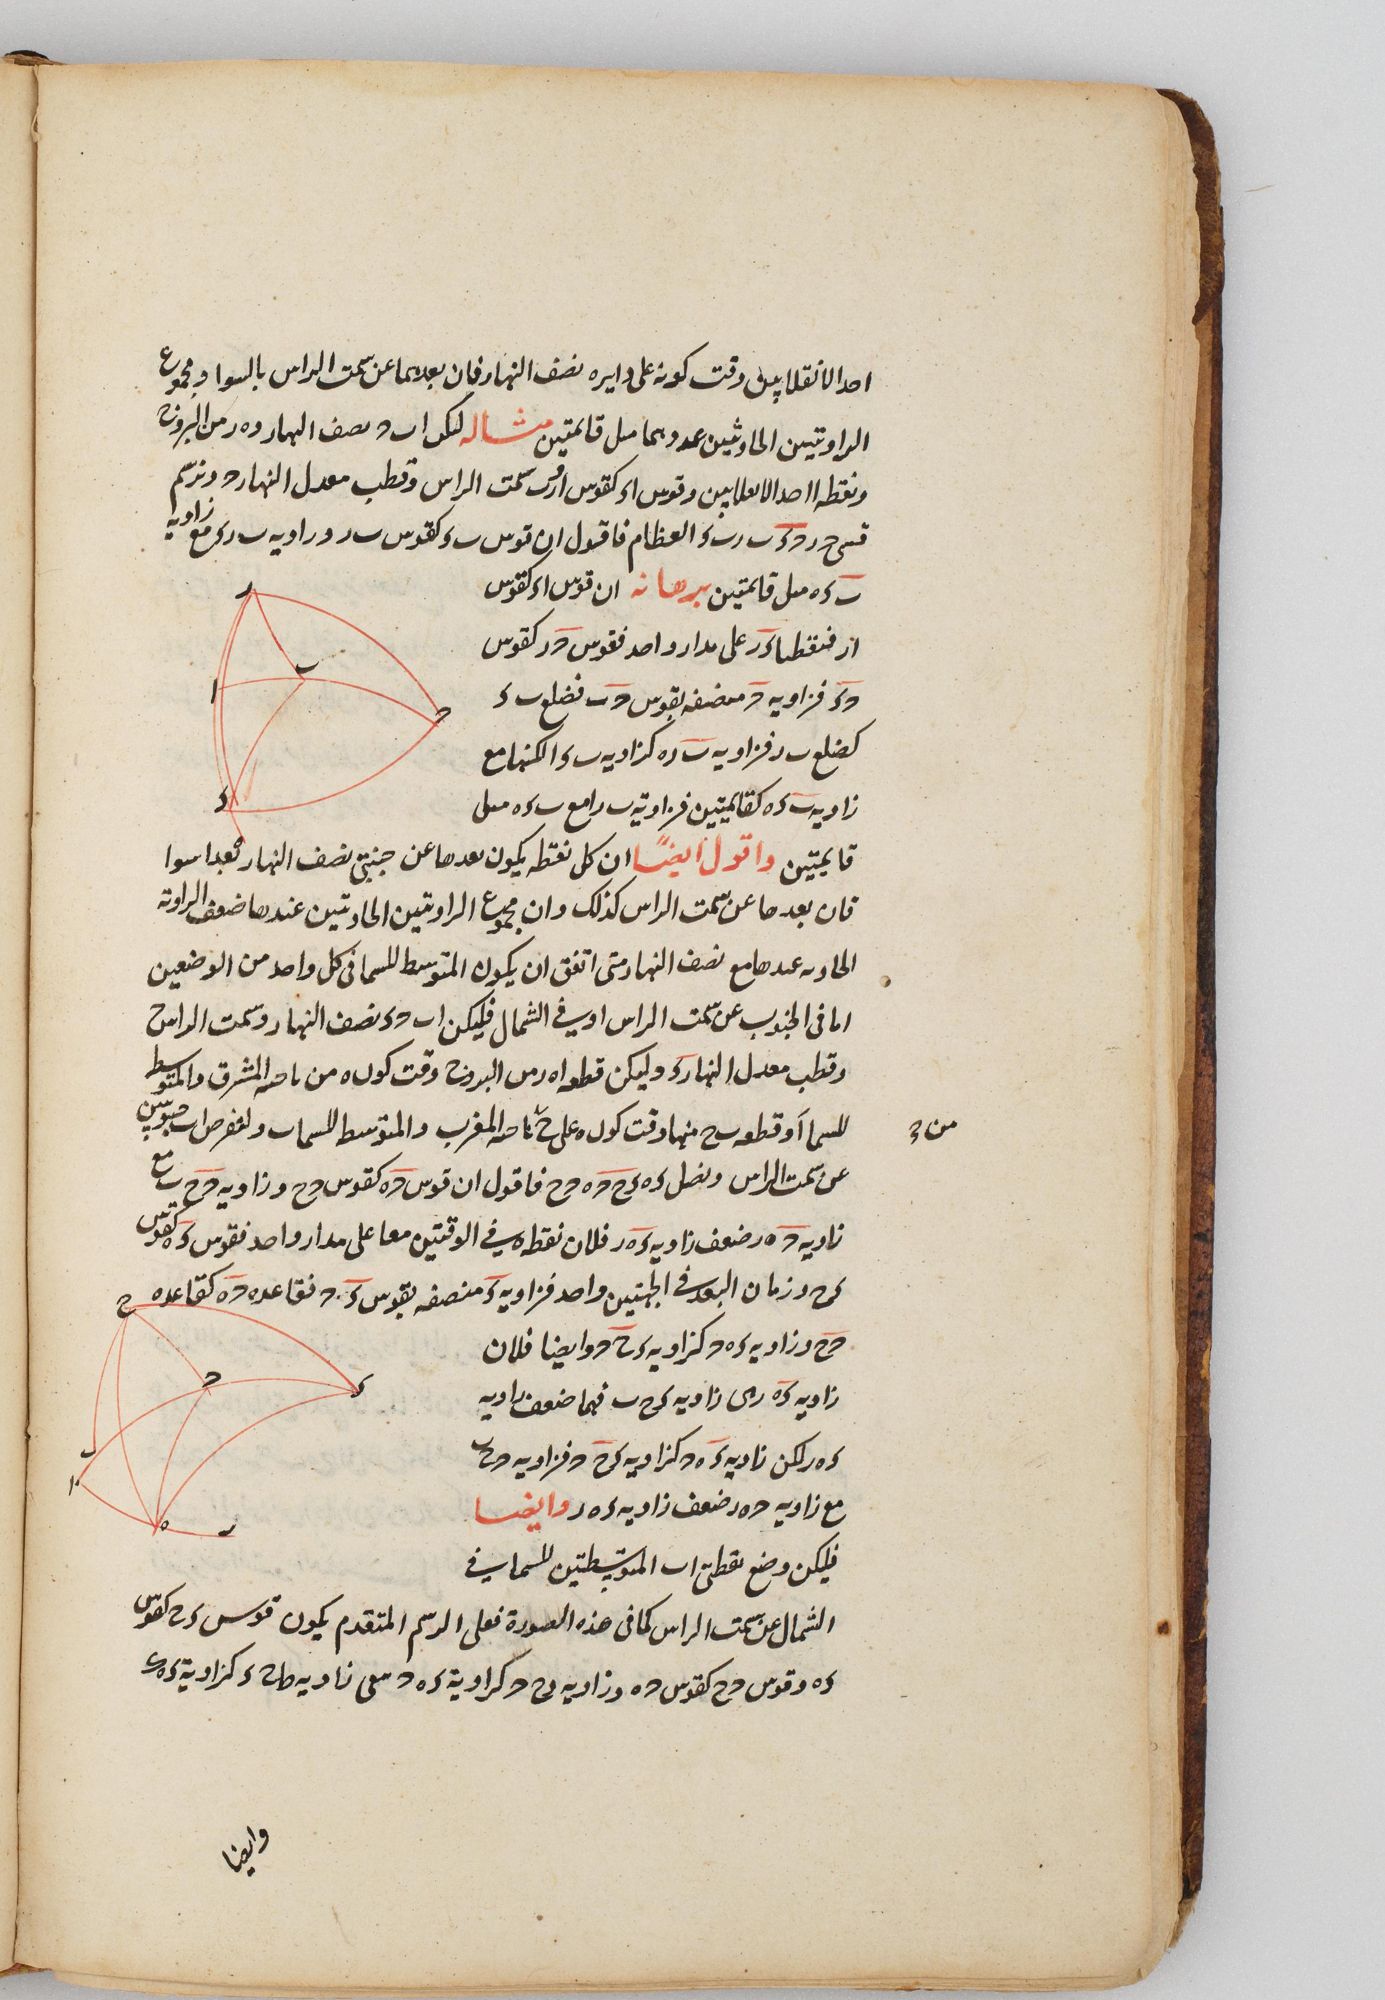 احد الانقلابين وقت كونه على دايره نصف النهار فان بعدهما عن سمت الراس بالسوا ومجموع
الزاويتين الحادثتين عندهما مثل قايمتين مثاله ليكن اب ح نصف النهار و ه ر من البروج
ونقطه ا احد الانقلابين وقوس اء كقوس ار وب سمت الراس وقطب معدل النهار ح ونرسم
قسى ح ر ح ء ب ر ب ء العظام فاقول ان قوس ب ء كقوس ب ر وزاويه ب ر ء مع زاويه
ب ء ه مثل قايمتين برهانه ان قوس اء كقوس
ار فنقطتا ء ر على مدار واحد فقوس ح ر كقوس
ح ء فزاويه ح منصفه بقوس ح ب فضلع ب ء
كضلع ب ر فزاويه ب ر ه كزاويه ب ء ا لكنها مع
زاويه ب ء ه كقايمتين فزاويه ب ر ا مع ب ء ه مثل
قايمتين واقول ايضًا ان كل نقطه يكون بعدها عن جنبتى نصف النهار بعدا سوا
فان بعدها عن سمت الراس كذلك وان مجموع الزاويتين الحادثتين عندها ضعف الزاوية
الحادثه عندها مع نصف النهار متى اتفق ان يكون المتوسط للسما فى كل واحد من الوضعين
اما فى الجنوب عن سمت الراس او فى الشمال فليكن اب ح ء نصف النهار وسمت الراس ح
وقطب معدل النهار ء وليكن قطعه ا ه ر من البروج وقت كون ه من ناحيه المشرق والمتوسط
للسما ا وقطعه ب ح منها وقت كون ه على ح ناحيه المغرب والمتوسط للسما ب ولنفرض اب جنوبيين
من ح
عن سمت الراس ونصل ء ه ء ح ح ه ح ح فاقول ان قوس ح ه كقوس ح ح وزاويه ح ح ب مع
زاويه ح ه ر ضعف زاويه ء ه ر فلان نقطه ه فى الوقتين معا على مدار واحد فقوس ء ه كقوس
ء ح وزمان البعد فى الجهتين واحد فزاويه ء منصفه بقوس ء ح فقاعده ح ه كقاعده
ح ح وزاويه ء ه ح كزاويه ء ح ح وايضا فلان
زاويه ء ه ر هى زاويه ء ح ب فهما ضعف زاويه
ء ه ر لكن زاويه ء ه ح كزاويه ء ح ح فزاويه ح ح ب
مع زاويه ح ه ر ضعف زاويه ء ه ر وايضا
فليكن وضع نقطتى اب المتوسطتين للسما فى
الشمال عن سمت الراس كما فى هذه الصورة فعلى الرسم المتقدم يكون قوس ء ح كقوس
ء ه وقوس ح ح كقوس ح ه وزاويه ء ح ح كزاوية ء ه ح
وايضا